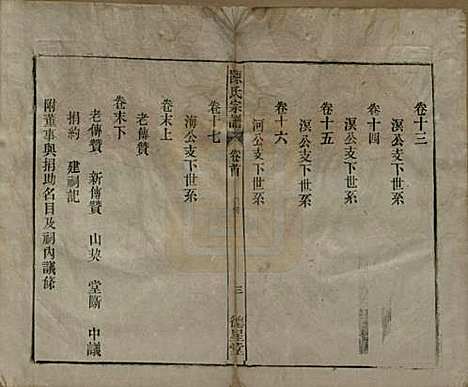 卷十三
溟公支下世系
卷十四
溟公支下世系
卷十五
溟公支下世系
卷十六
河公支下世系
陳氏宗譜
卷首
三
德星堂
卷十七
海公支下世系
卷末上
老傳贊
卷末下
老傳贊 新傳贊 山契 堂斷 中議
捐約 建祠記
附董事與捐助名目及祠內議條